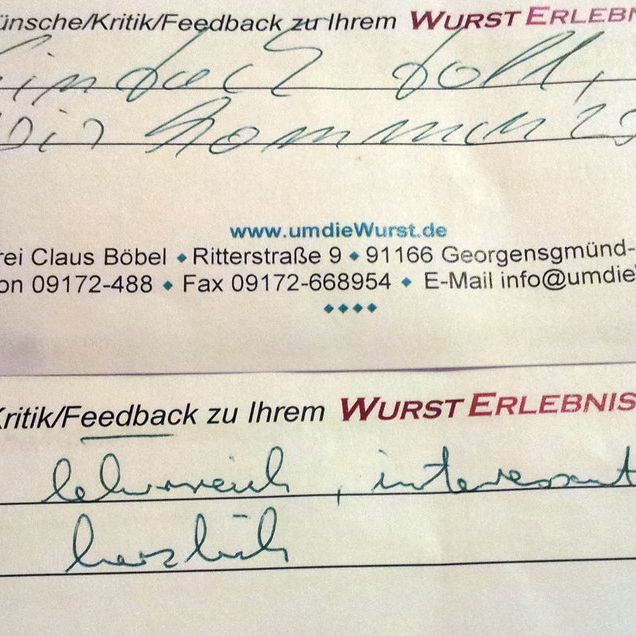 ünsche/Kritik/Feedback zu Ihrem WURST ERLEBN
Einfach toll,
Wir kommen
www.umdieWurst.de
rei Claus Böbel ⬥ Ritterstraße 9 ⬥ 91166 Georgensgmünd-
on 09172-488 ⬥ Fax 09172-668954 ⬥ E-Mail info@umdie
Kritik/Feedback zu Ihrem WURST ERLEBNIS
lehrreich, interessant
herzlich